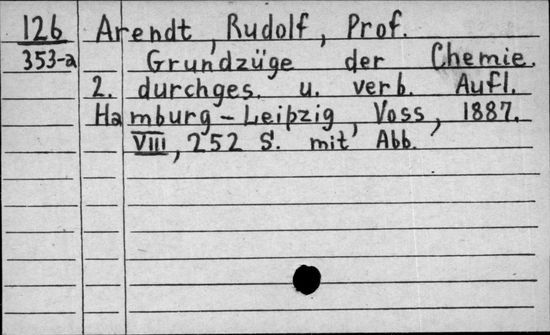 126 Arendt, Rudolf, Prof.
353-a Grundzüge der Chemie.
2. durchges. u. verb. Aufl.
Hamburg-Leipzig, Voss, 1887.
VIII, 252 S. mit Abb.